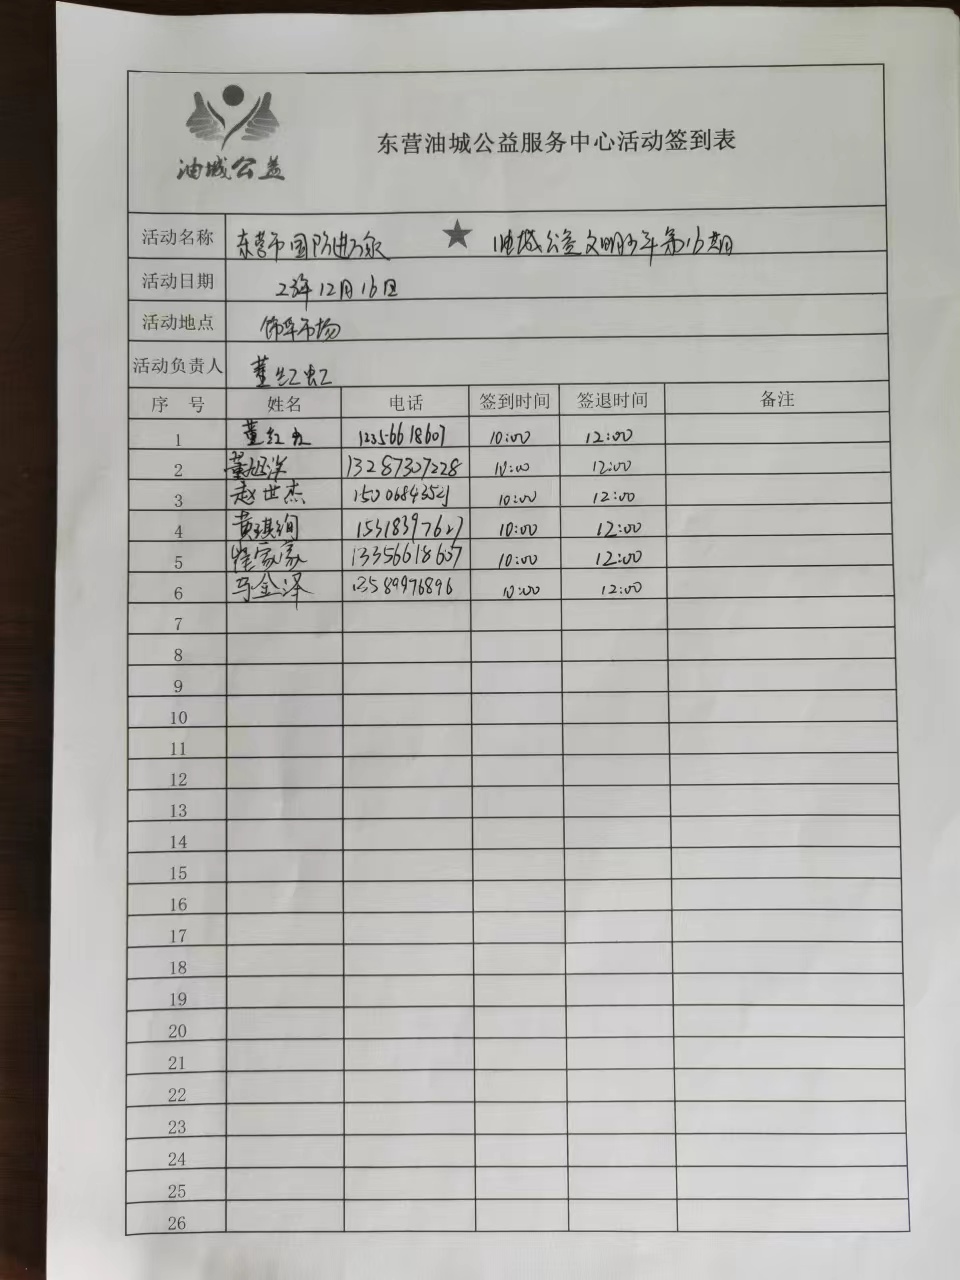 油城公益
东营油城公益服务中心活动签到表
活动名称 东营市国防进万家 ★ 油城公益文明少年第16期
活动日期 23年12月16日
活动地点 饰品市场
活动负责人 董红虹
序 号 姓名 电话 签到时间 签退时间 备注
1 董红 12356618607 10:00 12:00
2 董旭洋 13287307228 10:00 12:00
3 赵世杰 15006843521 10:00 12:00
4 黄琪绚 15318397627 10:00 12:00
5 崔家豪 13356618607 10:00 12:00
6 马金泽 13589976896 10:00 12:00
7
8
9
10
11
12
13
14
15
16
17
18
19
20
21
22
23
24
25
26